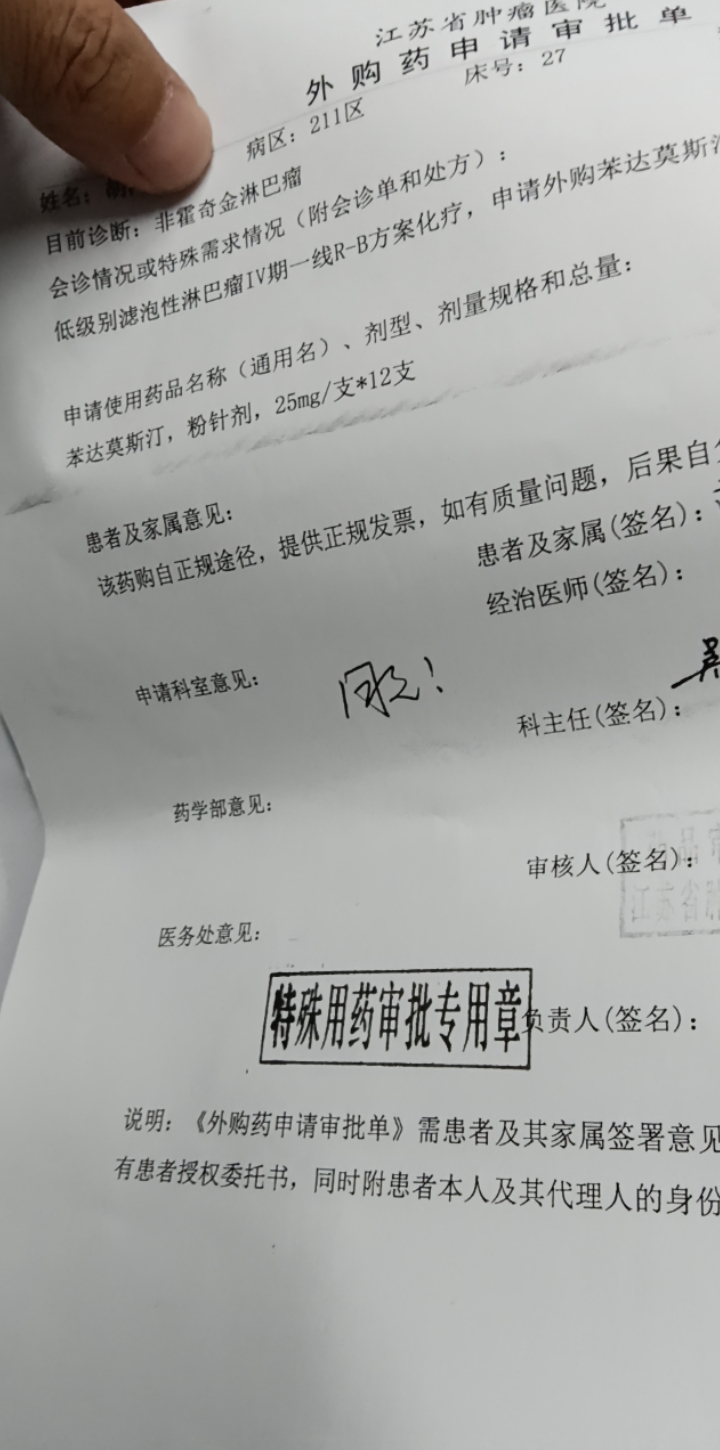 江苏省肿瘤医院
外购药申请审批单
病区：211区 床号：27
姓名：
目前诊断：非霍奇金淋巴瘤
会诊情况或特殊需求情况（附会诊单和处方）：
低级别滤泡性淋巴瘤IV期一线R-B方案化疗，申请外购苯达莫斯汀
申请使用药品名称（通用名）、剂型、剂量规格和总量：
苯达莫斯汀，粉针剂，25mg/支*12支
患者及家属意见：
该药购自正规途径，提供正规发票，如有质量问题，后果自
患者及家属(签名)：
经治医师(签名)：
申请科室意见：
同意！
吴
科主任(签名)：
药学部意见：
审核人(签名)：
医务处意见：
特殊用药审批专用章
负责人(签名)：
说明：《外购药申请审批单》需患者及其家属签署意见
有患者授权委托书，同时附患者本人及其代理人的身份